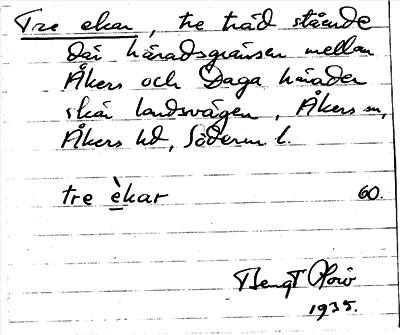 Tre ekar, tre träd stående
där häradsgränsen mellan
Åkers och Daga härader
skär landsvägen, Åkers sn,
Åkers hd, Söderm l.
tre èkar 60.
Bengt
1935.